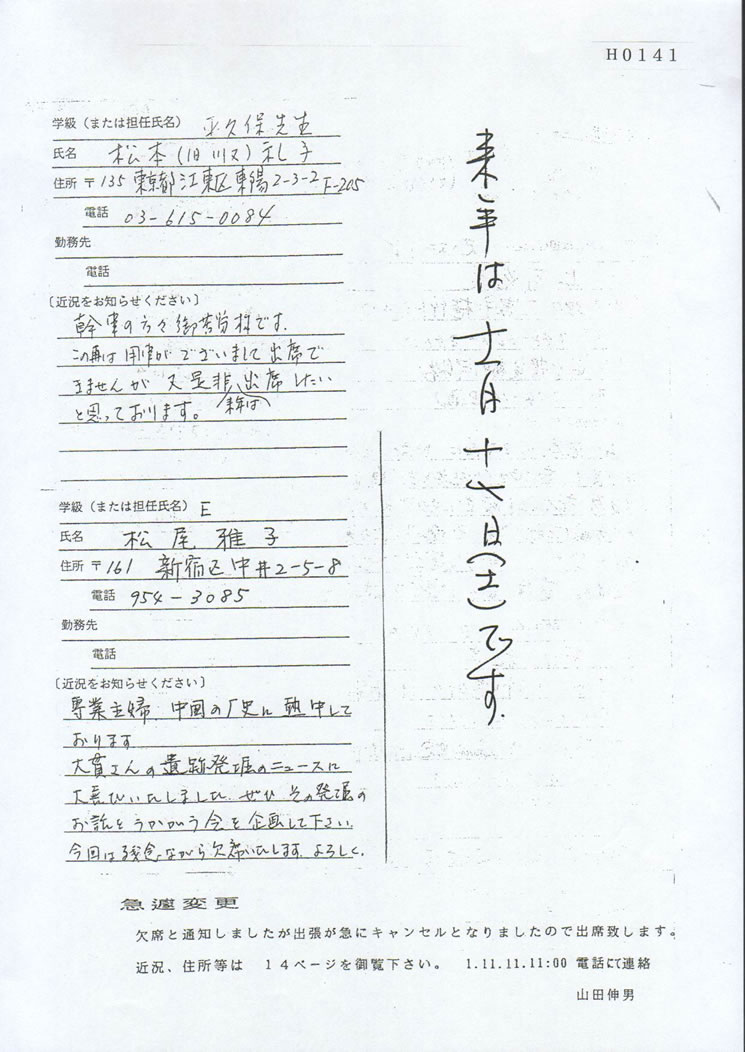 H0141
学級（または担任氏名） 平久保先生
氏名 松本（旧 川又）礼子
住所 〒135 東京都江東区東陽2-3-2 F-205
電話 03-615-0084
勤務先
電話
〔近況をお知らせください〕
幹事の方々御苦労様です.
この再は用事がございまして出席で
きませんが 又是非 来年は 出席したい
と思っております。
学級（または担任氏名） E
氏名 松尾雅子
住所 〒161 新宿区中井2-5-8
電話 954-3085
勤務先
電話
〔近況をお知らせください〕
専業主婦. 中国の歴史に熱中して
おります
大貫さんの遺跡発堀のニュースに
大喜びいたしました. ぜひ その発堀の
お話をうかがう会を企画して下さい.
今回は残念ながら欠席いたします. よろしく.
来年は十一月十七日（土）です.
急遽変更
欠席と通知しましたが出張が急にキャンセルとなりましたので出席致します。
近況、住所等は 14ページを御覧下さい。 1.11.11.11:00 電話にて連絡
山田伸男